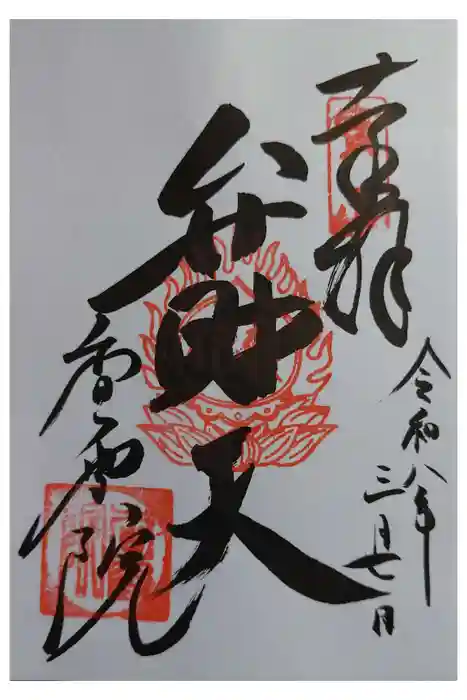 奉拝
令和八年
三月七日
弁財天
香雲院